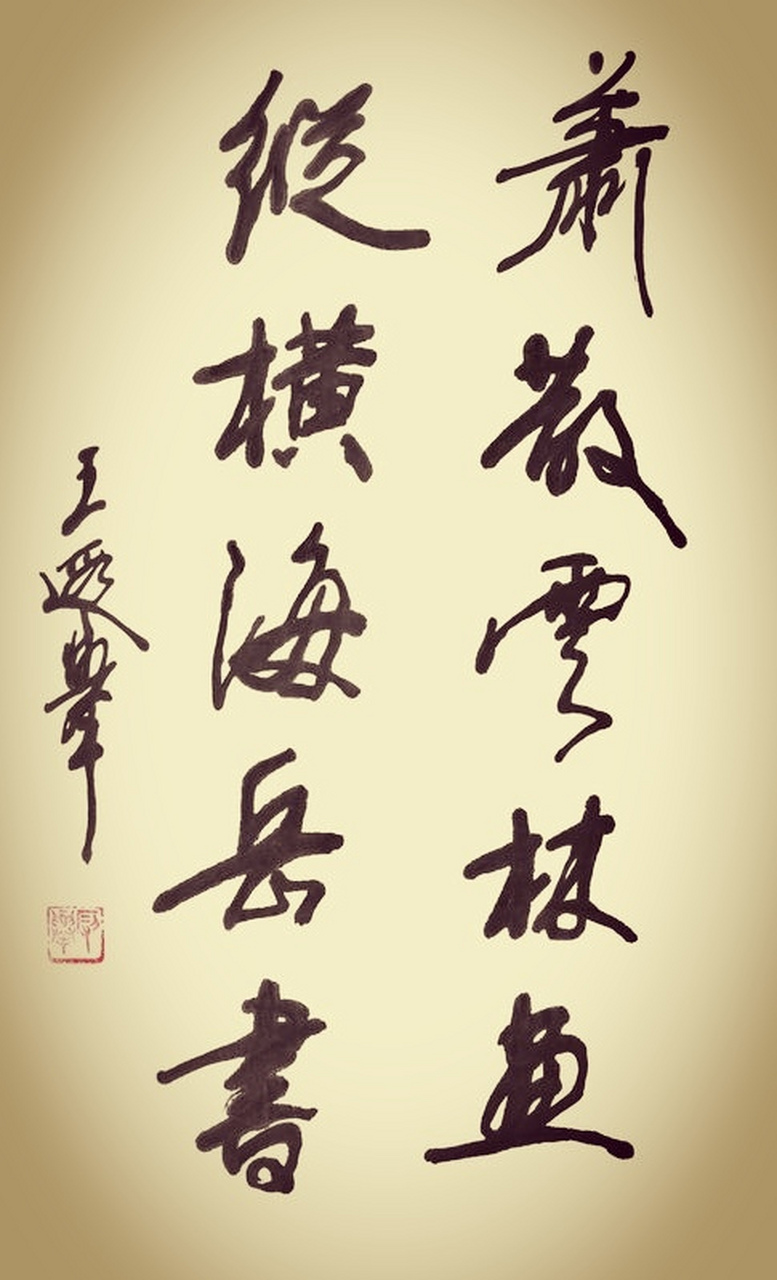 蕭散雲林畫
縱橫海岳書
王遐舉